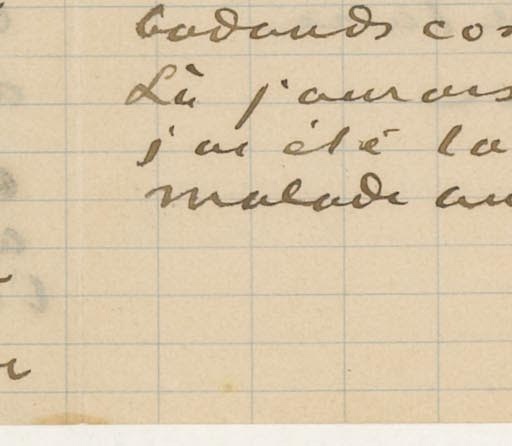 badauds co
Là j'aurais
j'ai été la
malade au